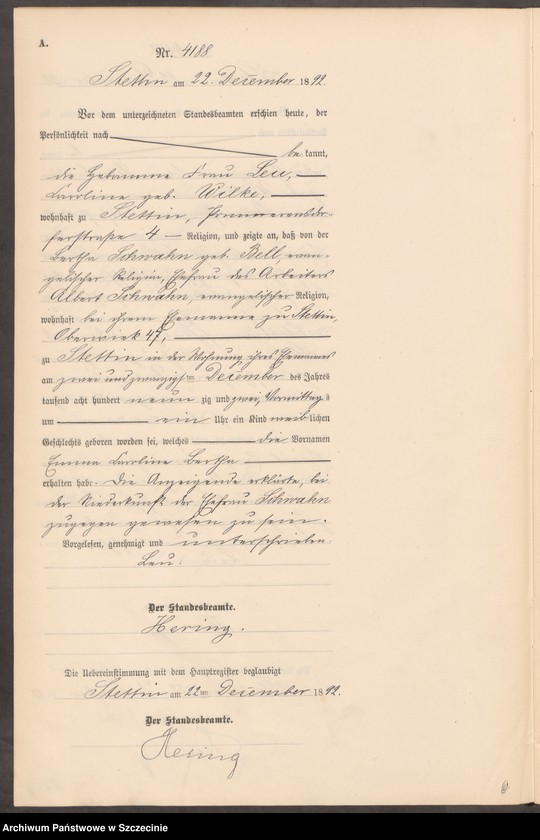 A.
Nr. 4188
Stettin am 22. December 1892.
Vor dem unterzeichneten Standesbeamten erschien heute, der
Persönlichkeit nach
be kannt,
die Hebamme Frau Leu,
Caroline geb. Wilke,
wohnhaft zu Stettin, Pommerensdor-
ferstraße 4 — Religion, und zeigte an, daß von der
Bertha Schwahn geb. Bell, evan-
gelischer Religion, Ehefrau des Arbeiters
Albert Schwahn, evangelischer Religion,
wohnhaft bei ihrem Ehemanne zu Stettin,
Oberwiek 47,
zu Stettin in der Wohnung ihres Ehemannes
am zwei und zwanzigsten December des Jahres
tausend acht hundert neun zig und zwei, Vormittags
um ein Uhr ein Kind weiblichen
Geschlechts geboren worden sei, welches die Vornamen
Emma Caroline Bertha
erhalten habe. Die Anzeigende erklärte, bei
der Niederkunft der Ehefrau Schwahn
zugegen gewesen zu sein.
Vorgelesen, genehmigt und unterschrieben
Leu.
Der Standesbeamte.
Hering.
Die Uebereinstimmung mit dem Hauptregister beglaubigt
Stettin am 22ten December 1892.
Der Standesbeamte.
Hering
Archiwum Państwowe w Szczecinie